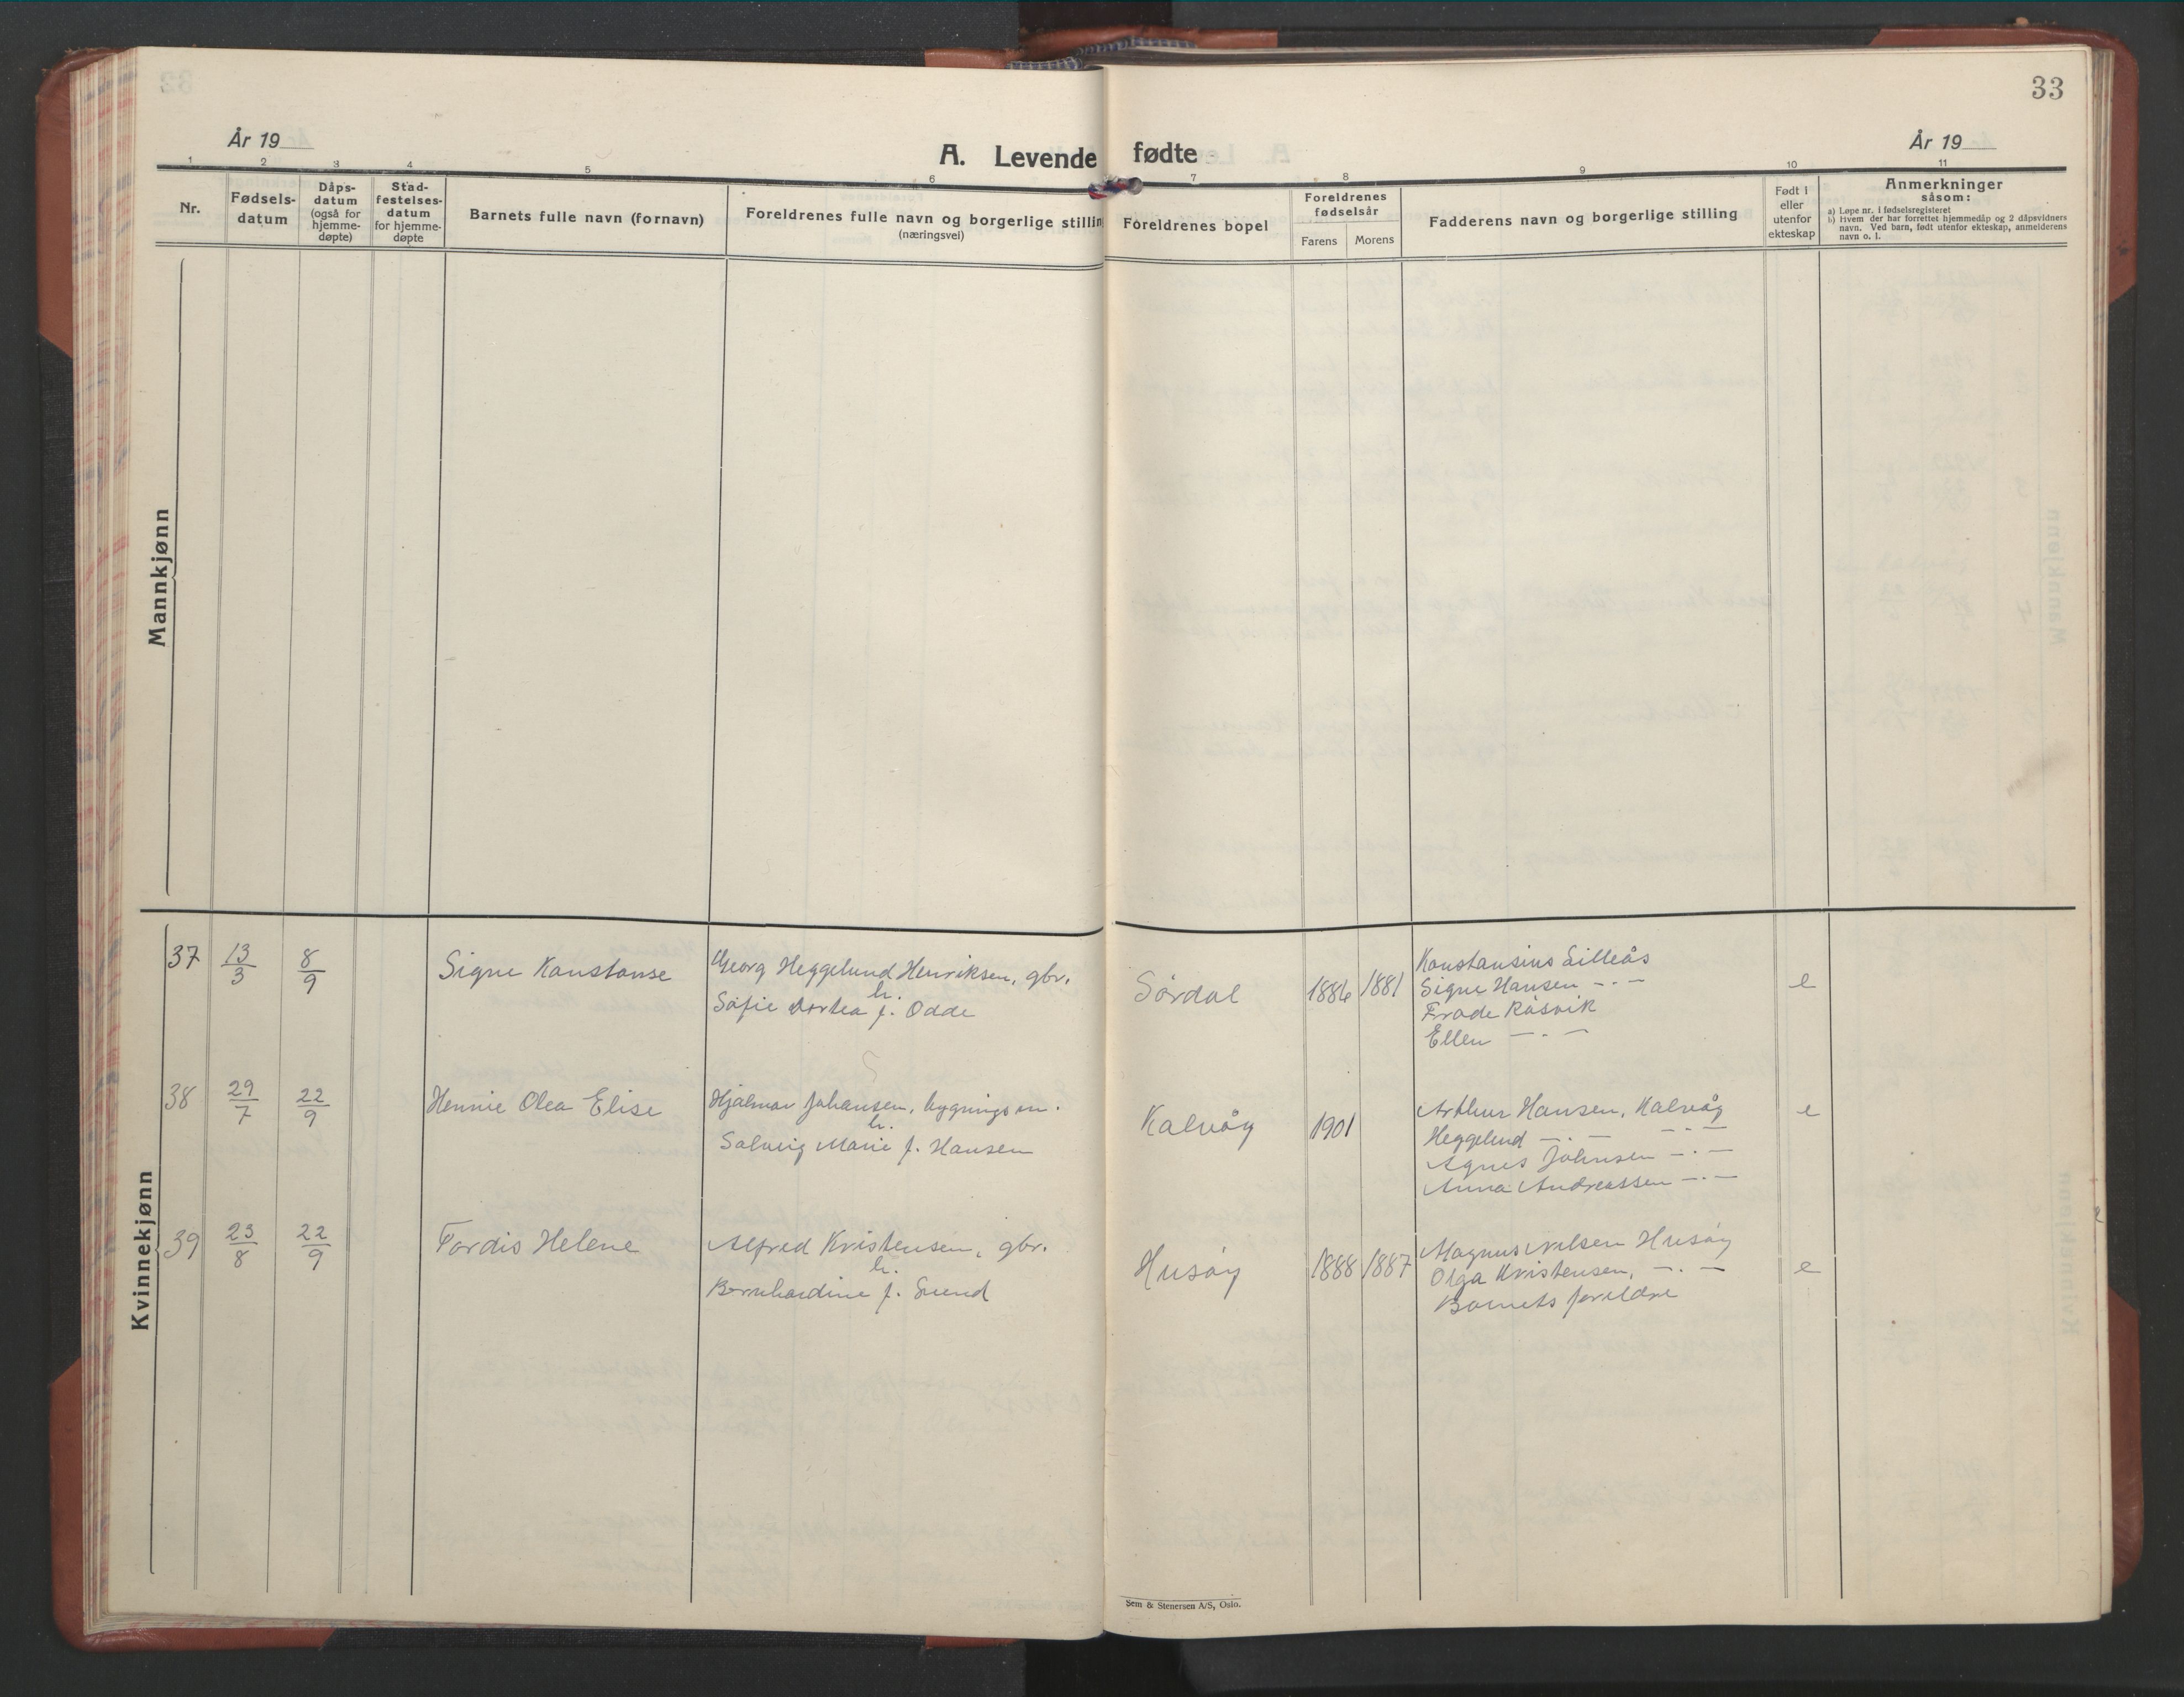 33
År 19
A. Levende fødte
År 19
1 2 3 4 5 6 7 8 9 10 11
Nr.
Fødsels-
datum
Dåps-
datum
(også for
hjemme-
døpte)
Stad-
festelses-
datum
for hjemme-
døpte
Barnets fulle navn (fornavn)
Foreldrenes fulle navn og borgerlige stilling
(næringsvei)
Foreldrenes bopel
Foreldrenes
fødselsår
Farens Morens
Fadderens navn og borgerlige stilling
Født i
eller
utenfor
ekteskap
Anmerkninger
såsom:
a) Løpe nr. i fødselsregisteret
b) Hvem der har forrettet hjemmedåp og 2 dåpsvidners
navn. Ved barn, født utenfor ekteskap, anmelderens
navn o. l.
Mannkjønn
Kvinnekjønn
37 13/3 8/9 Signe Konstanse
Georg Heggelund Henriksen, gbr.
h.
Sofie Dortea f. Odde
Sørdal 1886 1881
Konstansius Lilleås
Signe Hansen —.—
Frode Råsvik
Ellen —.—
e
38 29/7 22/9 Hennie Olea Elise
Hjalmar Johansen, bygningsm.
h.
Solveig Marie f. Hansen
Kalvåg 1901
Arthur Hansen, Kalvåg
Heggelund —.— —.—
Agnes Johnsen —.—
Anna Andreassen —.—
e
39 23/8 22/9 Tordis Helene
Alfred Kristensen, gbr.
h.
Bernhardine f. Svend
Husøy 1888 1887
Magnus Nilsen Husøy
Olga Kristensen, —.—
Barnets foreldre
e
Sem & Stenersen A/S, Oslo.